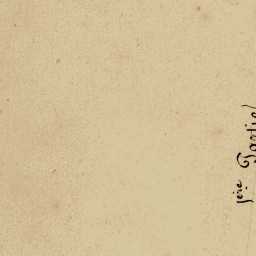 jere Partie